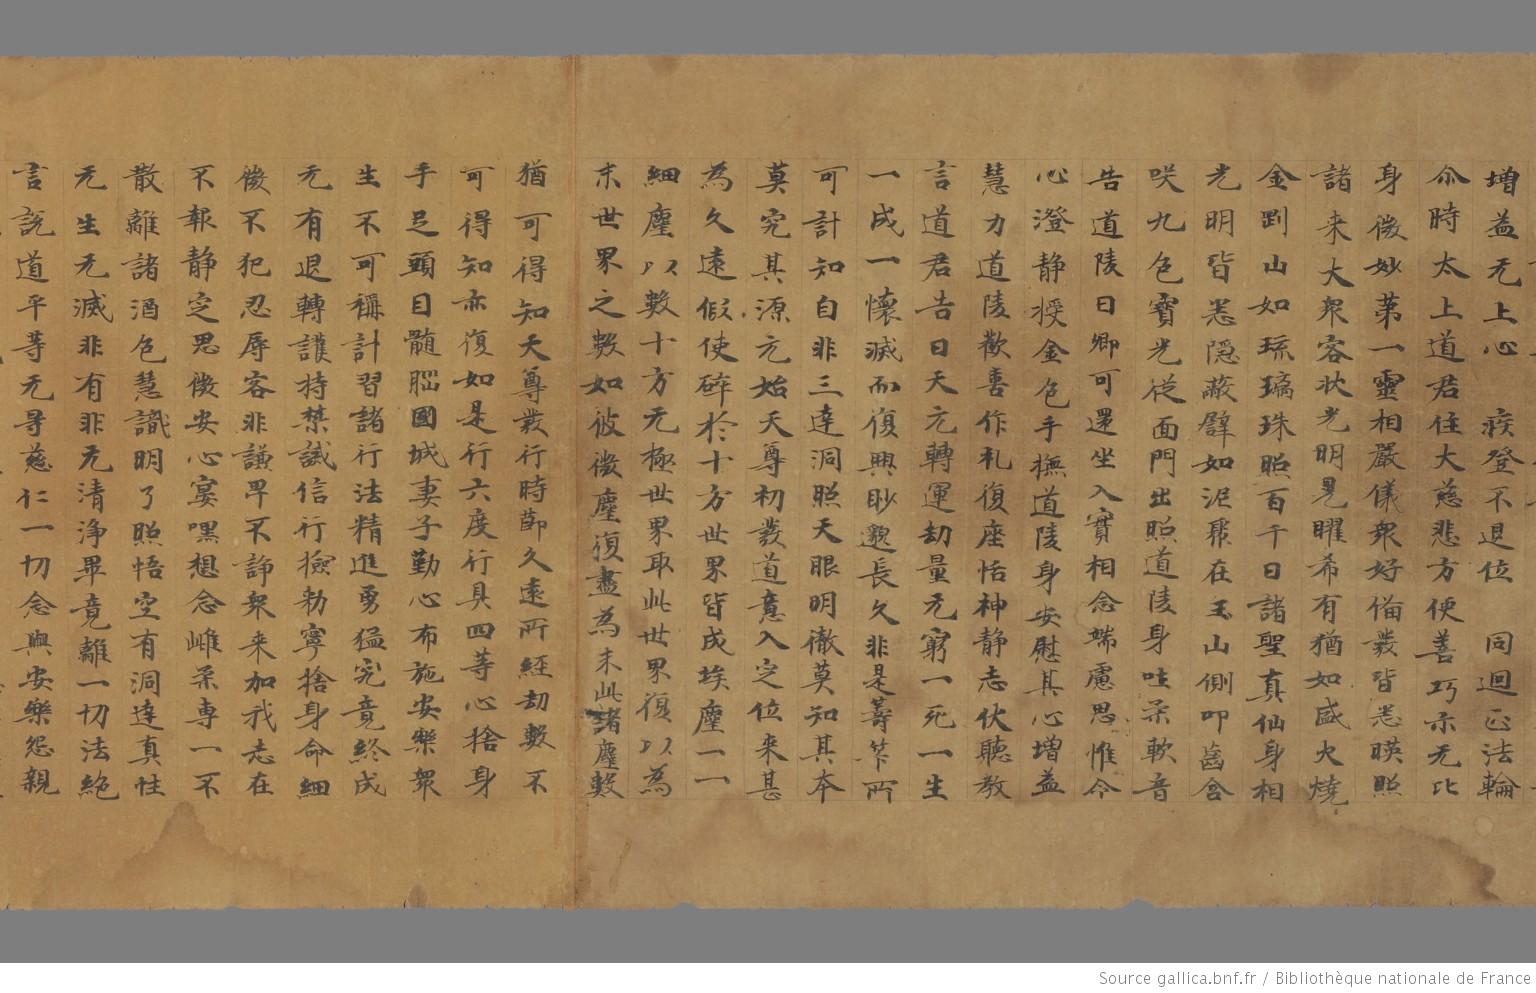 増益无上心 疾登不退位 同迴正法輪
尒時太上道君住大慈悲方便善巧示无比
身微妙第一靈相嚴儀衆好俻聚皆悉暎照
諸来大衆容状光明晃曜希有猶如盛火燒
金剛山如琉璃珠照百千日諸聖真仙身相
光明皆悉隠蔽譬如泥聚在玉山側叩齒含
咲九色寳光従面門出照道陵身吐柔軟音
告道陵曰卿可還坐入實相念端慮思惟今
心澄静授金色手撫道陵身安慰其心增益
慧力道陵歡喜作礼復座恬神静志伏聽教
言道君告曰天元轉運劫量无窮一死一生
一成一懷滅而復興眇邈長久非是筭竿所
可計知自非三達洞照天眼明徹莫知其本
莫究其源元始天尊初發道意入定位来甚
為久遠假使碎於十方世界皆成埃塵一一
細塵以數十方无極世界取此世界復以為
末世界之數如彼微塵復盡為末此諸塵數
猶可得知天尊發行時節久遠所經劫數不
可得知亦復如是行六度行具四等心捨身
手足頭目髓腦國城妻子勤心布施安樂衆
生不可稱計習諸行法精進勇猛究竟終成
无有退轉護持禁誡信行撿勑寧捨身命細
微不犯忍辱容非謙卑不諍衆来加我志在
不報静定思微安心寞嘿想念雌柔専一不
散離諸酒色慧識明了照悟空有洞達真性
无生无滅非有非无清浄畢竟離一切法絶
言説道平等无㝵慈仁一切念與安樂怨親
Source gallica.bnf.fr / Bibliothèque nationale de France